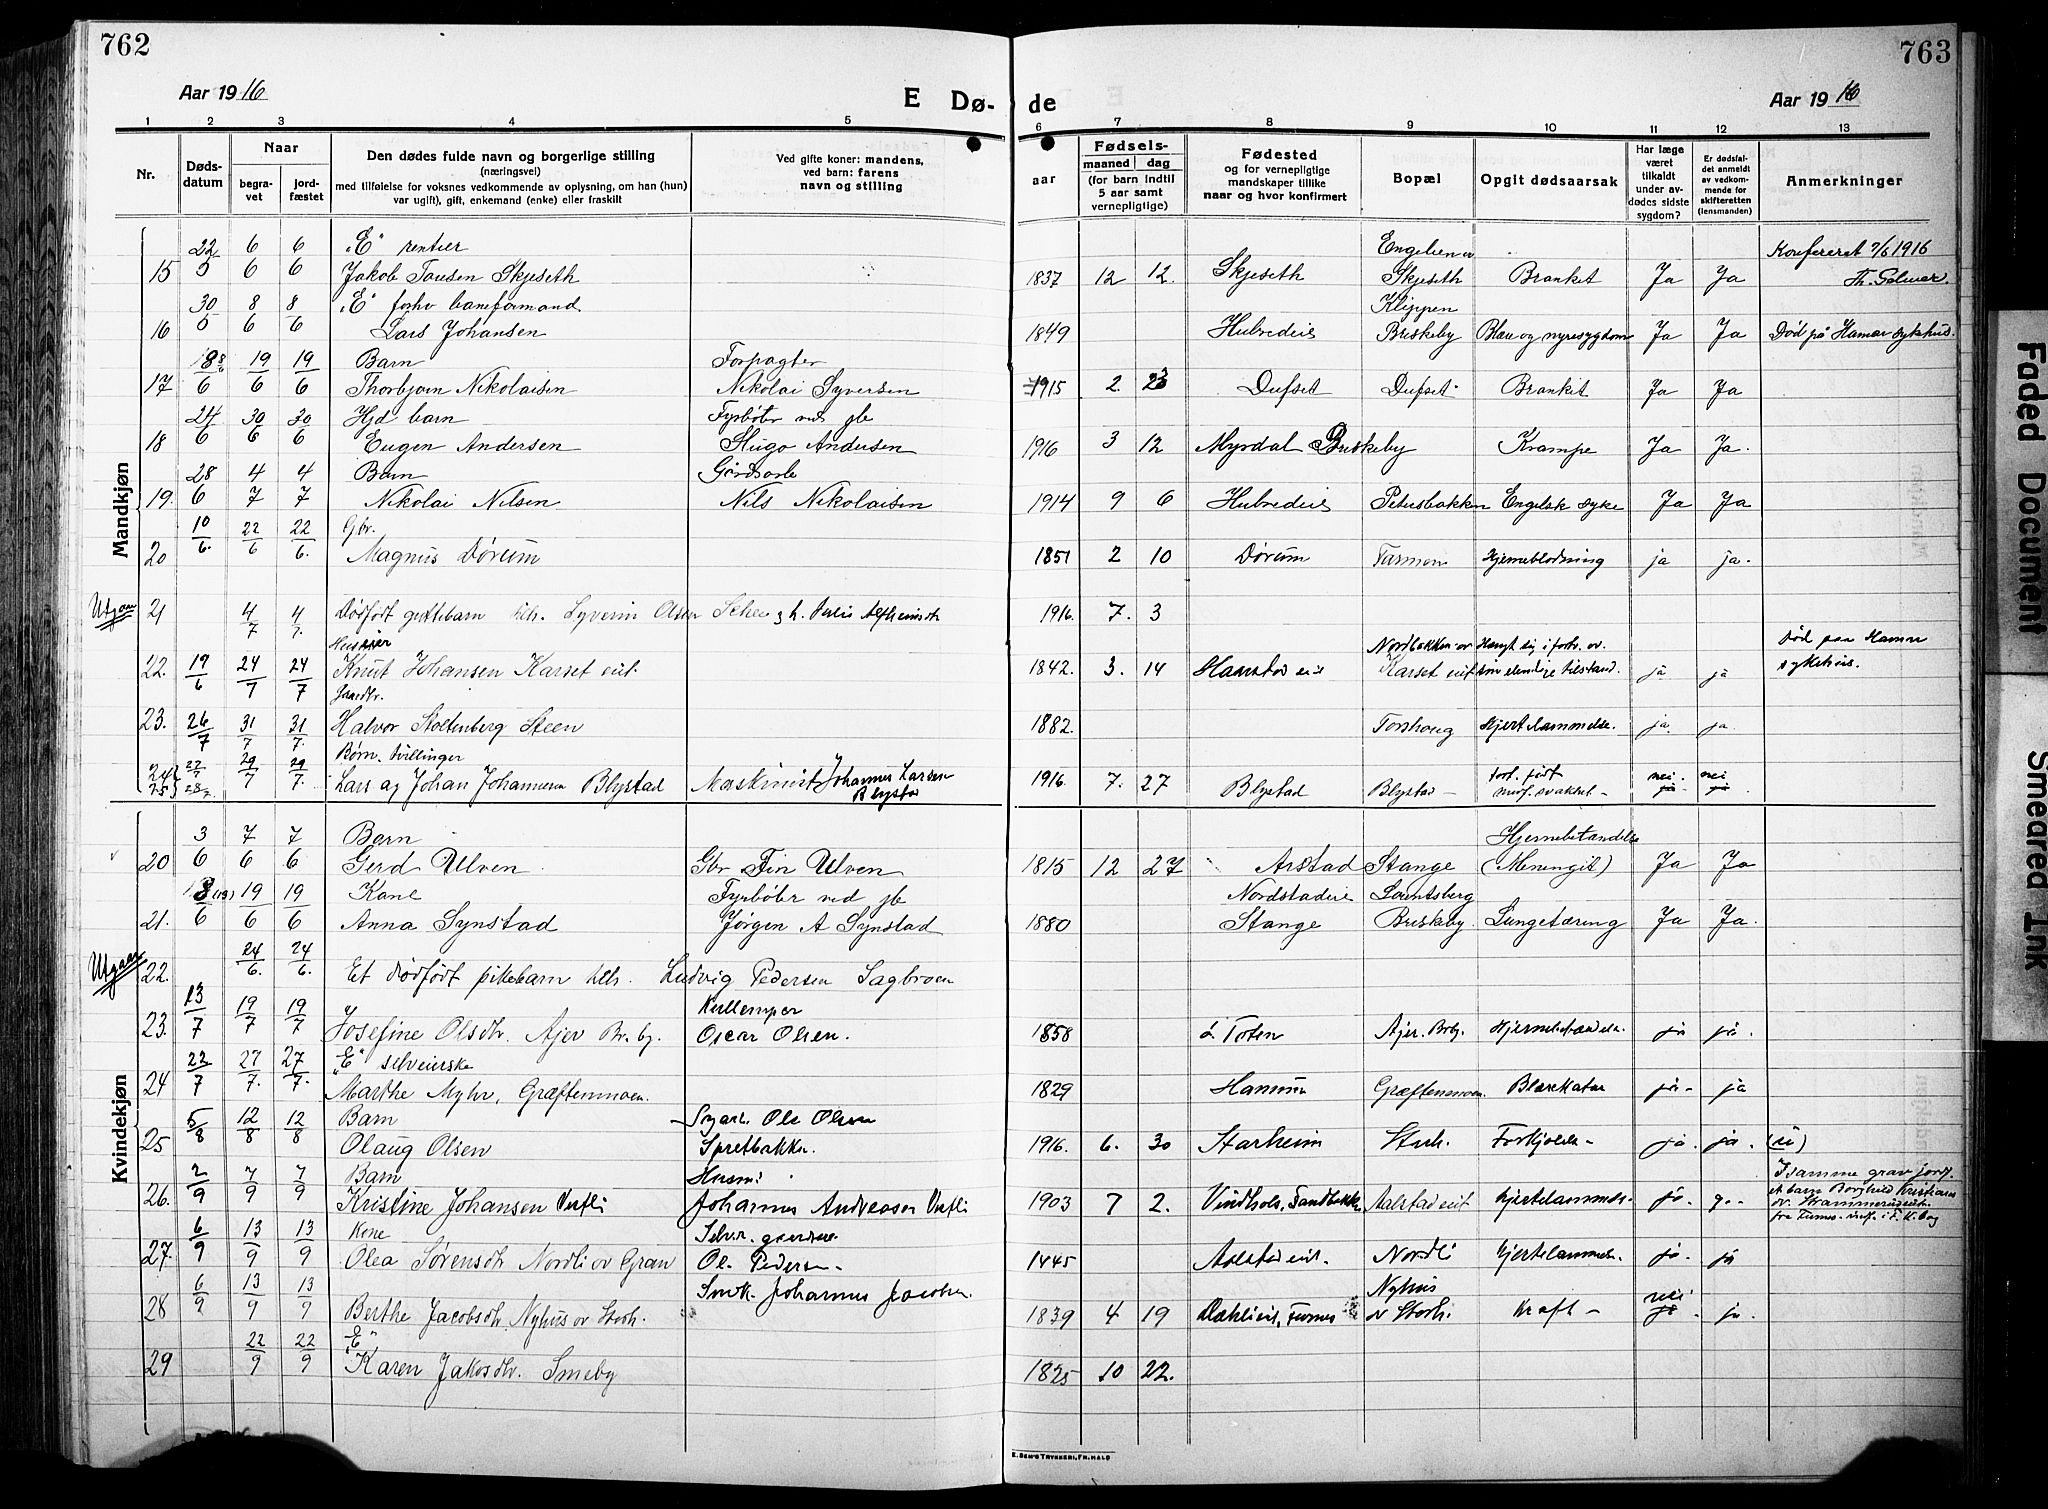 762
763
Aar 1916
E Dø-
de
Aar 1916
1 2 3 4 5 6 7 8 9 10 11 12 13
Nr.
Døds-
datum
Naar
begra-
vet
jord-
fæstet
Den dødes fulde navn og borgerlige stilling
(næringsvei)
med tilføielse for voksnes vedkommende av oplysning, om han (hun)
var ugift), gift, enkemand (enke) eller fraskilt
Ved gifte koner: mandens,
ved barn: farens
navn og stilling
aar
Fødsels-
maaned
dag
(for barn indtil
5 aar samt
vernepligtige)
Fødested
og for vernepligtige
mandskaper tillike
naar og hvor konfirmert
Bopæl
Opgit dødsaarsak
Har læge
været
tilkaldt
under av-
dødes sidste
sygdom?
Er dødsfal-
det anmeldt
av vedkom-
mende for
skifteretten
(lensmanden)
Anmerkninger
Mandkjøn
22 6 6 "E" rentier Engelien av Konfereret 7/6 1916
15 5 6 6 Jakob Tousen Skjeseth 1837 12 12. Skjeseth Skjeseth Bronket Ja Ja
30 8 8 "E" forhv baneformand Klippen
16 5 6 6 Lars Johansen 1849 Hubredeie Briskeby Blære og nyresygdom Ja Ja Død på Hamar sykehus.
18 19 19 Barn Forpagter
17 6 6 6 Thorbjørn Nikolaisen Nikolai Syversen 1915 2. 23 Dufset Dufset Bronkit Ja Ja
24 30 30 Hjd barn Fyrbøter ved jb
18 6 6 6 Eugen Andersen Hugo Andersen 1916 3 12 Myrdal Briskeby Krampe Ja Ja.
28 4 4 Barn Gårdsarb
19. 6 7 7 Nikolai Nilsen Nils Nikolaisen 1914 9 6 Hubredeie Petersbakken Engelsk syke Ja Ja
10 22 22 Gbr.
20 6. 6 6. Magnus Dørum 1851 2 10 Dørum Hjerneblødning ja ja.
Utgaar 21 4/7 4/7. Dødfødt guttebarn Syverin Olsen 1916. 7. 3
Huseier Nordbakken av Død paa Hamar
22. 19/6 24/7 24/7 Knut Johansen Karset eiet. 1842. 3. 14 Karset eiet elendige tilstand. ja ja sykehus.
Gaardbr.
23. 26/7 31/7 31/7. Halvor Stoltenberg Steen 1882. Torshoug Hjertelammelse. ja. ja.
Børn. tvillinger
24 27/7 29/7 29/7. Lars og Johan Johannesen Blystad Maskinist Johannes Larsen 1916. 7. 27 Blystad Blystad født nei. nei
25 28/7 Blystad svakhet ja ja
Kvindekjøn
3 7 7 Barn Hjernebetændelse
20 6 6 6 Gerd Ulven Gbr Fin Ulven 1815 12 27 Arstad Stange (Meningit) Ja Ja
8 (13) 19 19 Kone Fyrbøter ved jb Nordstadeie
21. 6 6 6 Anna Synstad Jørgen A Synstad 1880 Stange Briskeby. Lungetæring Ja Ja.
Utgaar 22. 24/6. 24/6. Et dødfødt pikebarn Ludvig Pedersen Sagbroen
23. 13/7 19/7 19/7 Josefine Olsdtr. Ajer Br. by. Oscar Olsen. 1858 Toten Ajer. Brby. Hjernebetændelse. ja ja.
"E" selveierske
24 22/7 27/7. 27/7. Marthe Myhr, Græftenmoen. 1829 Hanum Græftenmoen. Blærekatar ja- ja
Barn Ole Olsen
25 5/8 12/8 12/8 Olaug Olsen Spretbakken. 1916. 6. 30 Starheim ja. ja.
Barn Husm. I samme grav jordf.
26. 2/9 7/9 7/9 Kristine Johansen Vestli Johannes Andreassen Vestli 1903 7 2. Aalstad eiet hjertelammelse. ja et barn Borghild Kristiansen
Kone
27. 6/9 13/9 13/9 Olea Sørensdtr Nordli av Gran Ole Pedersen 1445 Aalstad eiet. Nordli hjertelammelse. ja. ja
Smk. Johannes Jacobsen Nyhus nei
28 6/9 13/9 13/9 Berthe Jacobsdtr Nyhus av Storh. 1839 4 19 Furnes av Storh. Kræft - ja. ja.
"E"
29 22/9 22/9 Karen Jakobsdtr. Smeby 1825 10 22.
E. SEM'S TRYKKERI, FR.HALD
Faded Document
Smeared Ink